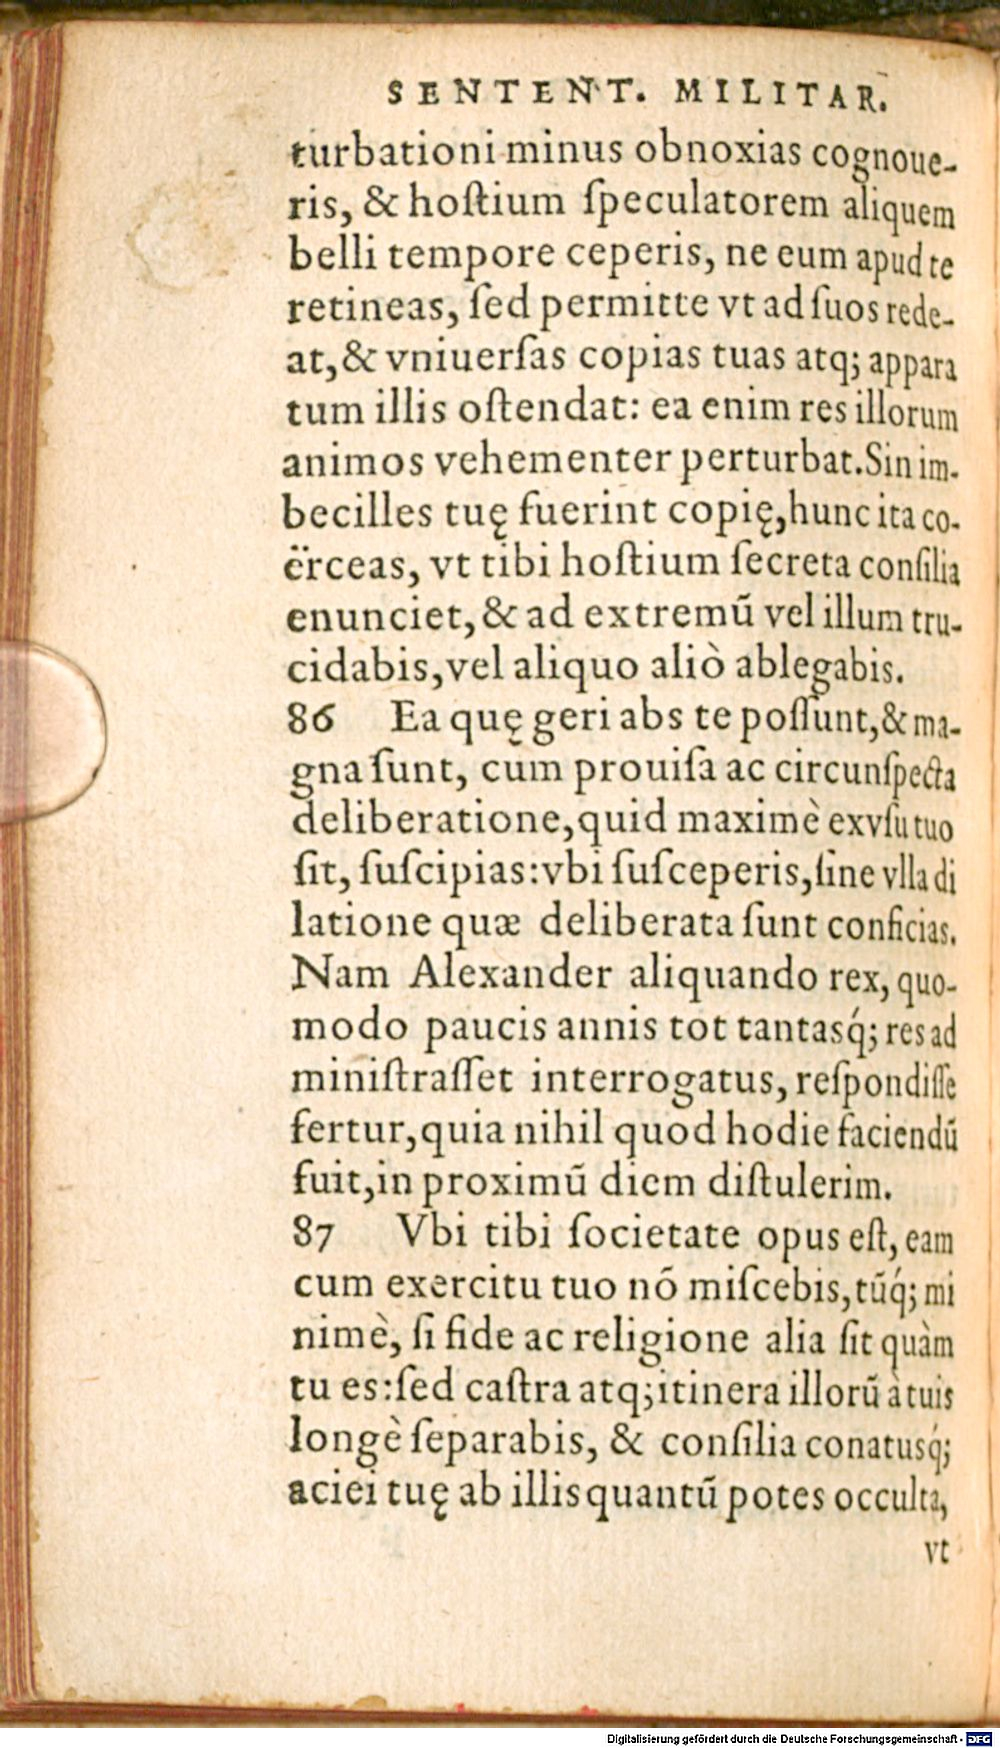 SENTENT. MILITAR.
turbationi minus obnoxias cognoue-
ris, & hoſtium ſpeculatorem aliquem
belli tempore ceperis, ne eum apud te
retineas, ſed permitte vt ad ſuos rede-
at, & vniuerſas copias tuas atq; appara
tum illis oſtendat: ea enim res illorum
animos vehementer perturbat. Sin im-
becilles tuę fuerint copię, hunc ita co-
ërceas, vt tibi hoſtium ſecreta conſilia
enunciet, & ad extremũ vel illum tru-
cidabis, vel aliquo aliò ablegabis.
86 Ea quę geri abs te poſſunt, & ma-
gna ſunt, cum prouiſa ac circunſpecta
deliberatione, quid maximè ex vſu tuo
ſit, ſuſcipias: vbi ſuſceperis, ſine vlla di
latione quæ deliberata ſunt conficias.
Nam Alexander aliquando rex, quo-
modo paucis annis tot tantasq́; res ad
miniſtraſſet interrogatus, reſpondiſſe
fertur, quia nihil quod hodie faciendũ
fuit, in proximũ diem diſtulerim.
87 Vbi tibi ſocietate opus eſt, eam
cum exercitu tuo nõ miſcebis, tũq́; mi
nimè, ſi fide ac religione alia ſit quàm
tu es: ſed caſtra atq; itinera illorũ à tuis
longè ſeparabis, & conſilia conatusq́;
aciei tuę ab illis quantũ potes occulta,
vt
Digitalisierung gefördert durch die Deutsche Forschungsgemeinschaft - DFG